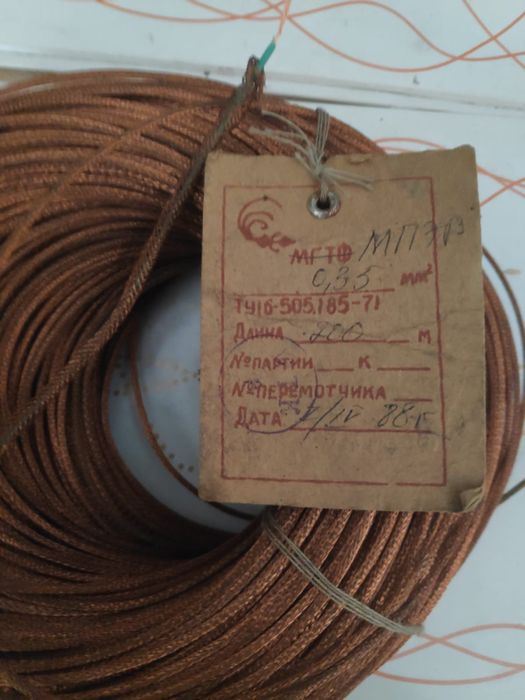 МГТФ МПЭВ
0,35 мм²
ТУ16-505.185-71
Длина 200 м
№ партии К
№ перемотчика
Дата /IV 88г